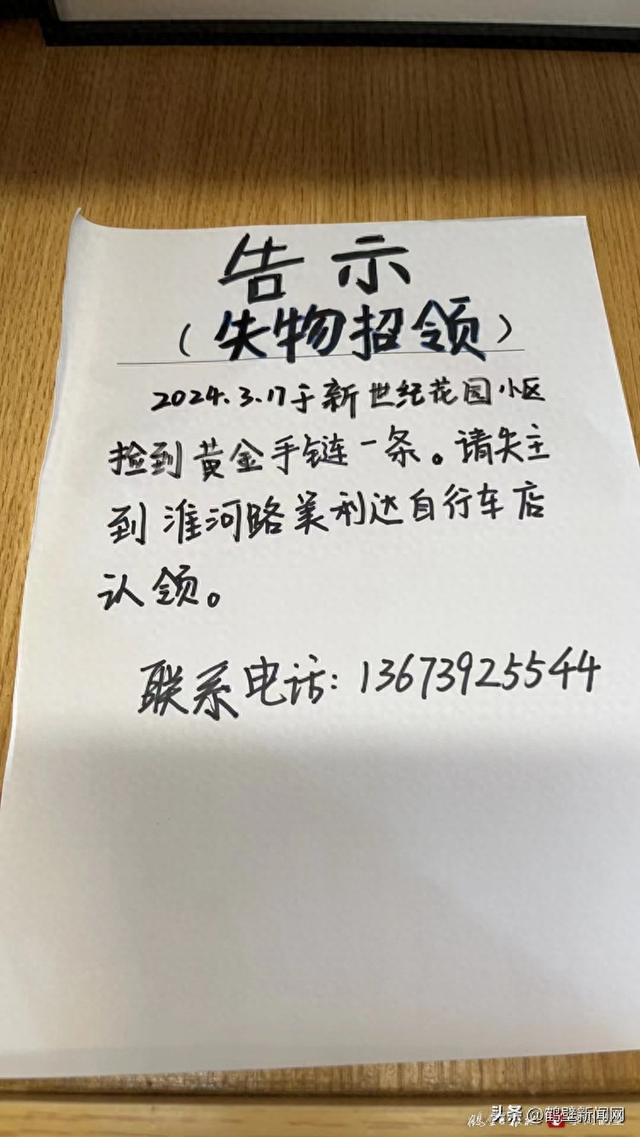 告示
（失物招领）
2024.3.17于新世纪花园小区
捡到黄金手链一条。请失主
到淮河路美利达自行车店
认领。
联系电话：13673925544
头条 @鹤壁新闻网